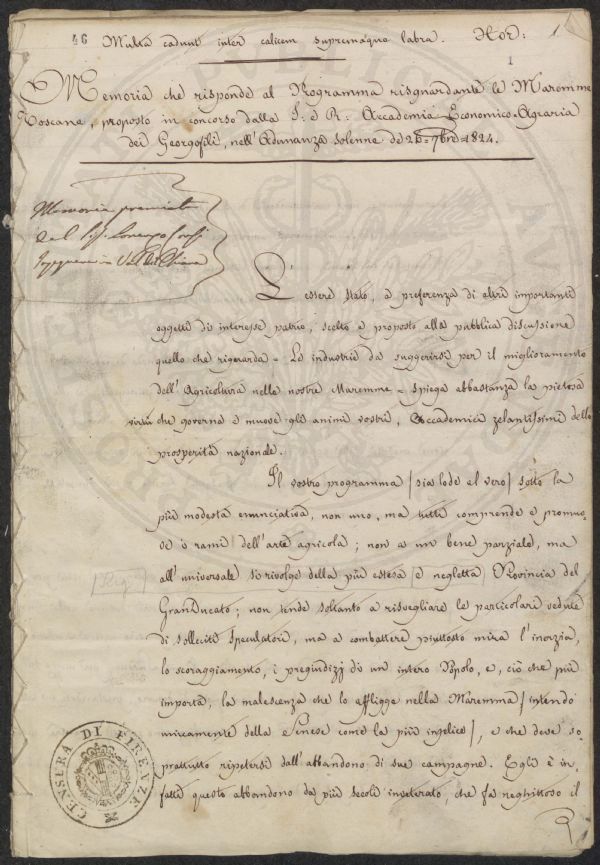 46 Multa cadunt inter calicem supremaque labra. Hor: 1
1
Memoria che risponde al Programma risguardante le Maremme
Toscane, proposto in concorso dalla I: e R: Accademia Economico-Agraria
dei Georgofili, nell'Adunanza solenne de' 26 = 7bre = 1824.
Memoria premiata
del Sig. Lorenzo Corsi
Ingegnere in Val di Chiana
L'essere stato, a preferenza di altri importanti
oggetti di interesse patrio, scelto e proposto alla pubblica discussione
quello che riguarda = Le industrie da suggerirsi per il miglioramento
dell'Agricoltura nelle nostre Maremme = spiega abbastanza la pietosa
virtù che governa e muove gli animi vostri, Accademici zelantissimi della
prosperità nazionale.
Il vostro programma /sia lode al vero/ sotto la
più modesta enunciativa, non uno, ma tutti comprende e promuo-
ve i rami dell'arte agricola; non a un bene parziale, ma
all'universale si rivolge della più estesa e negletta Provincia del
GranDucato; non tende soltanto a risvegliare le particolari vedute
di solleciti speculatori, ma a combattere piuttosto mira l'inerzia,
lo scoraggiamento, i pregiudizj di un intero Popolo, e, ciò che più
importa, la malescenza che lo affligge nella Maremma /intendo
unicamente della Senese come la più infelice/, e che deve so-
prattutto ripetersi dall'abbandono di sue campagne. Egli è in-
fatti questo abbandono da più secoli inveterato, che fa neghittoso il
CENSURA DI FIRENZE